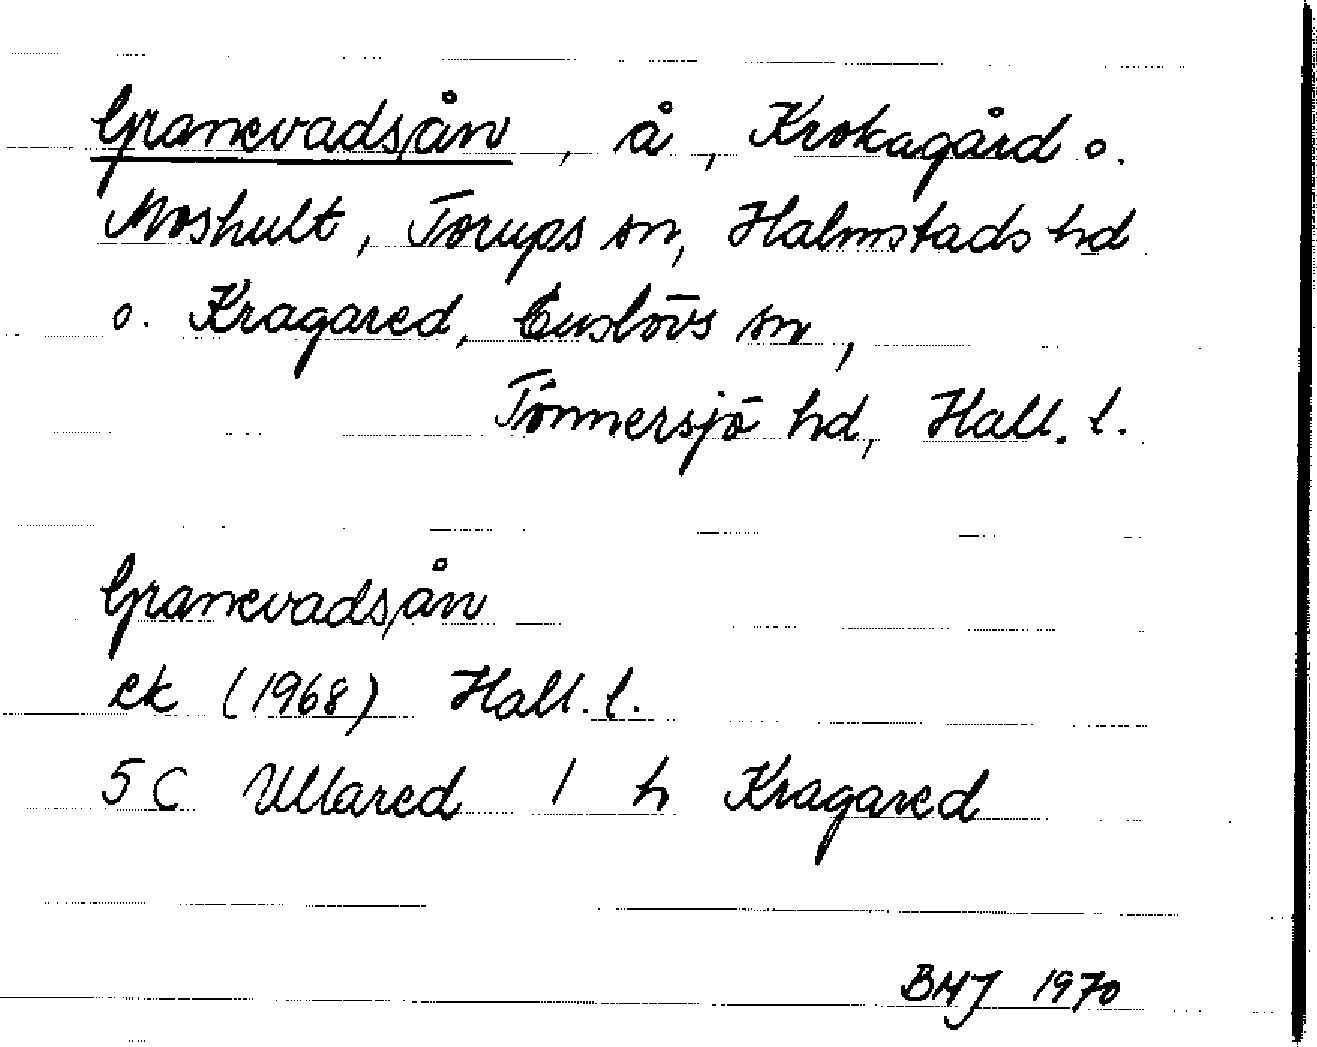 Granevadsån, å, Krokagård o.
Moshult, Torups sn, Halmstads hd
o. Kragared, Enslövs sn,
Tönnersjö hd, Hall. l.
Granevadsån
ek (1968) Hall. l.
5 C Ullared 1 h Kragared
BMJ 1970